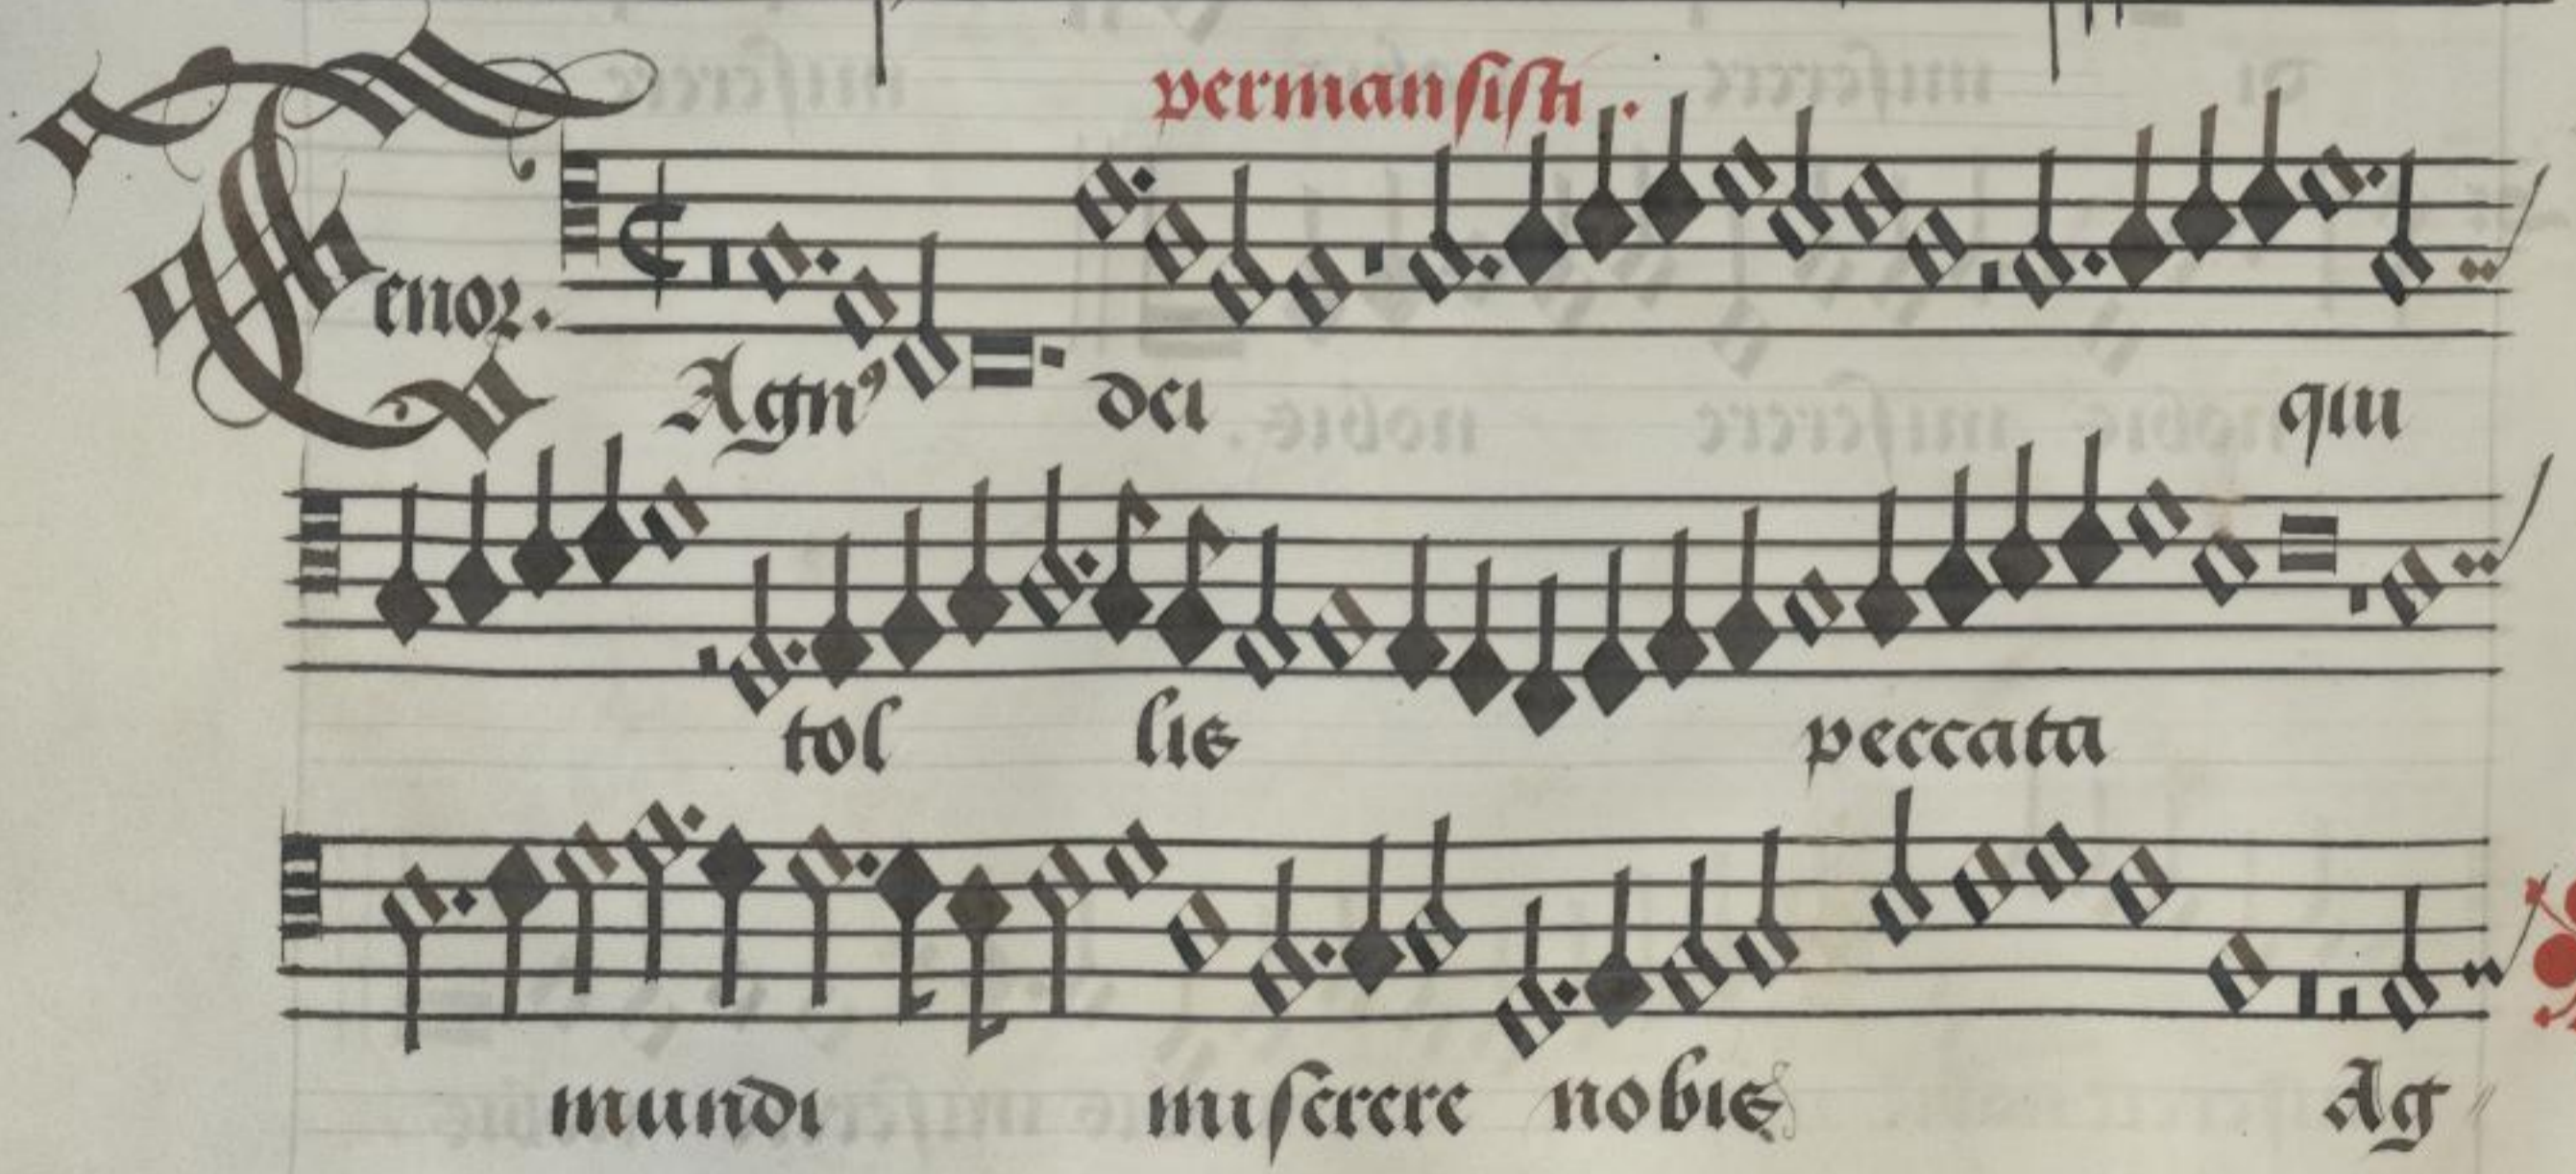 permansisti..
Tenor.
Agnꝰ dei qui
tol lis peccata
mundi miserere nobis Ag